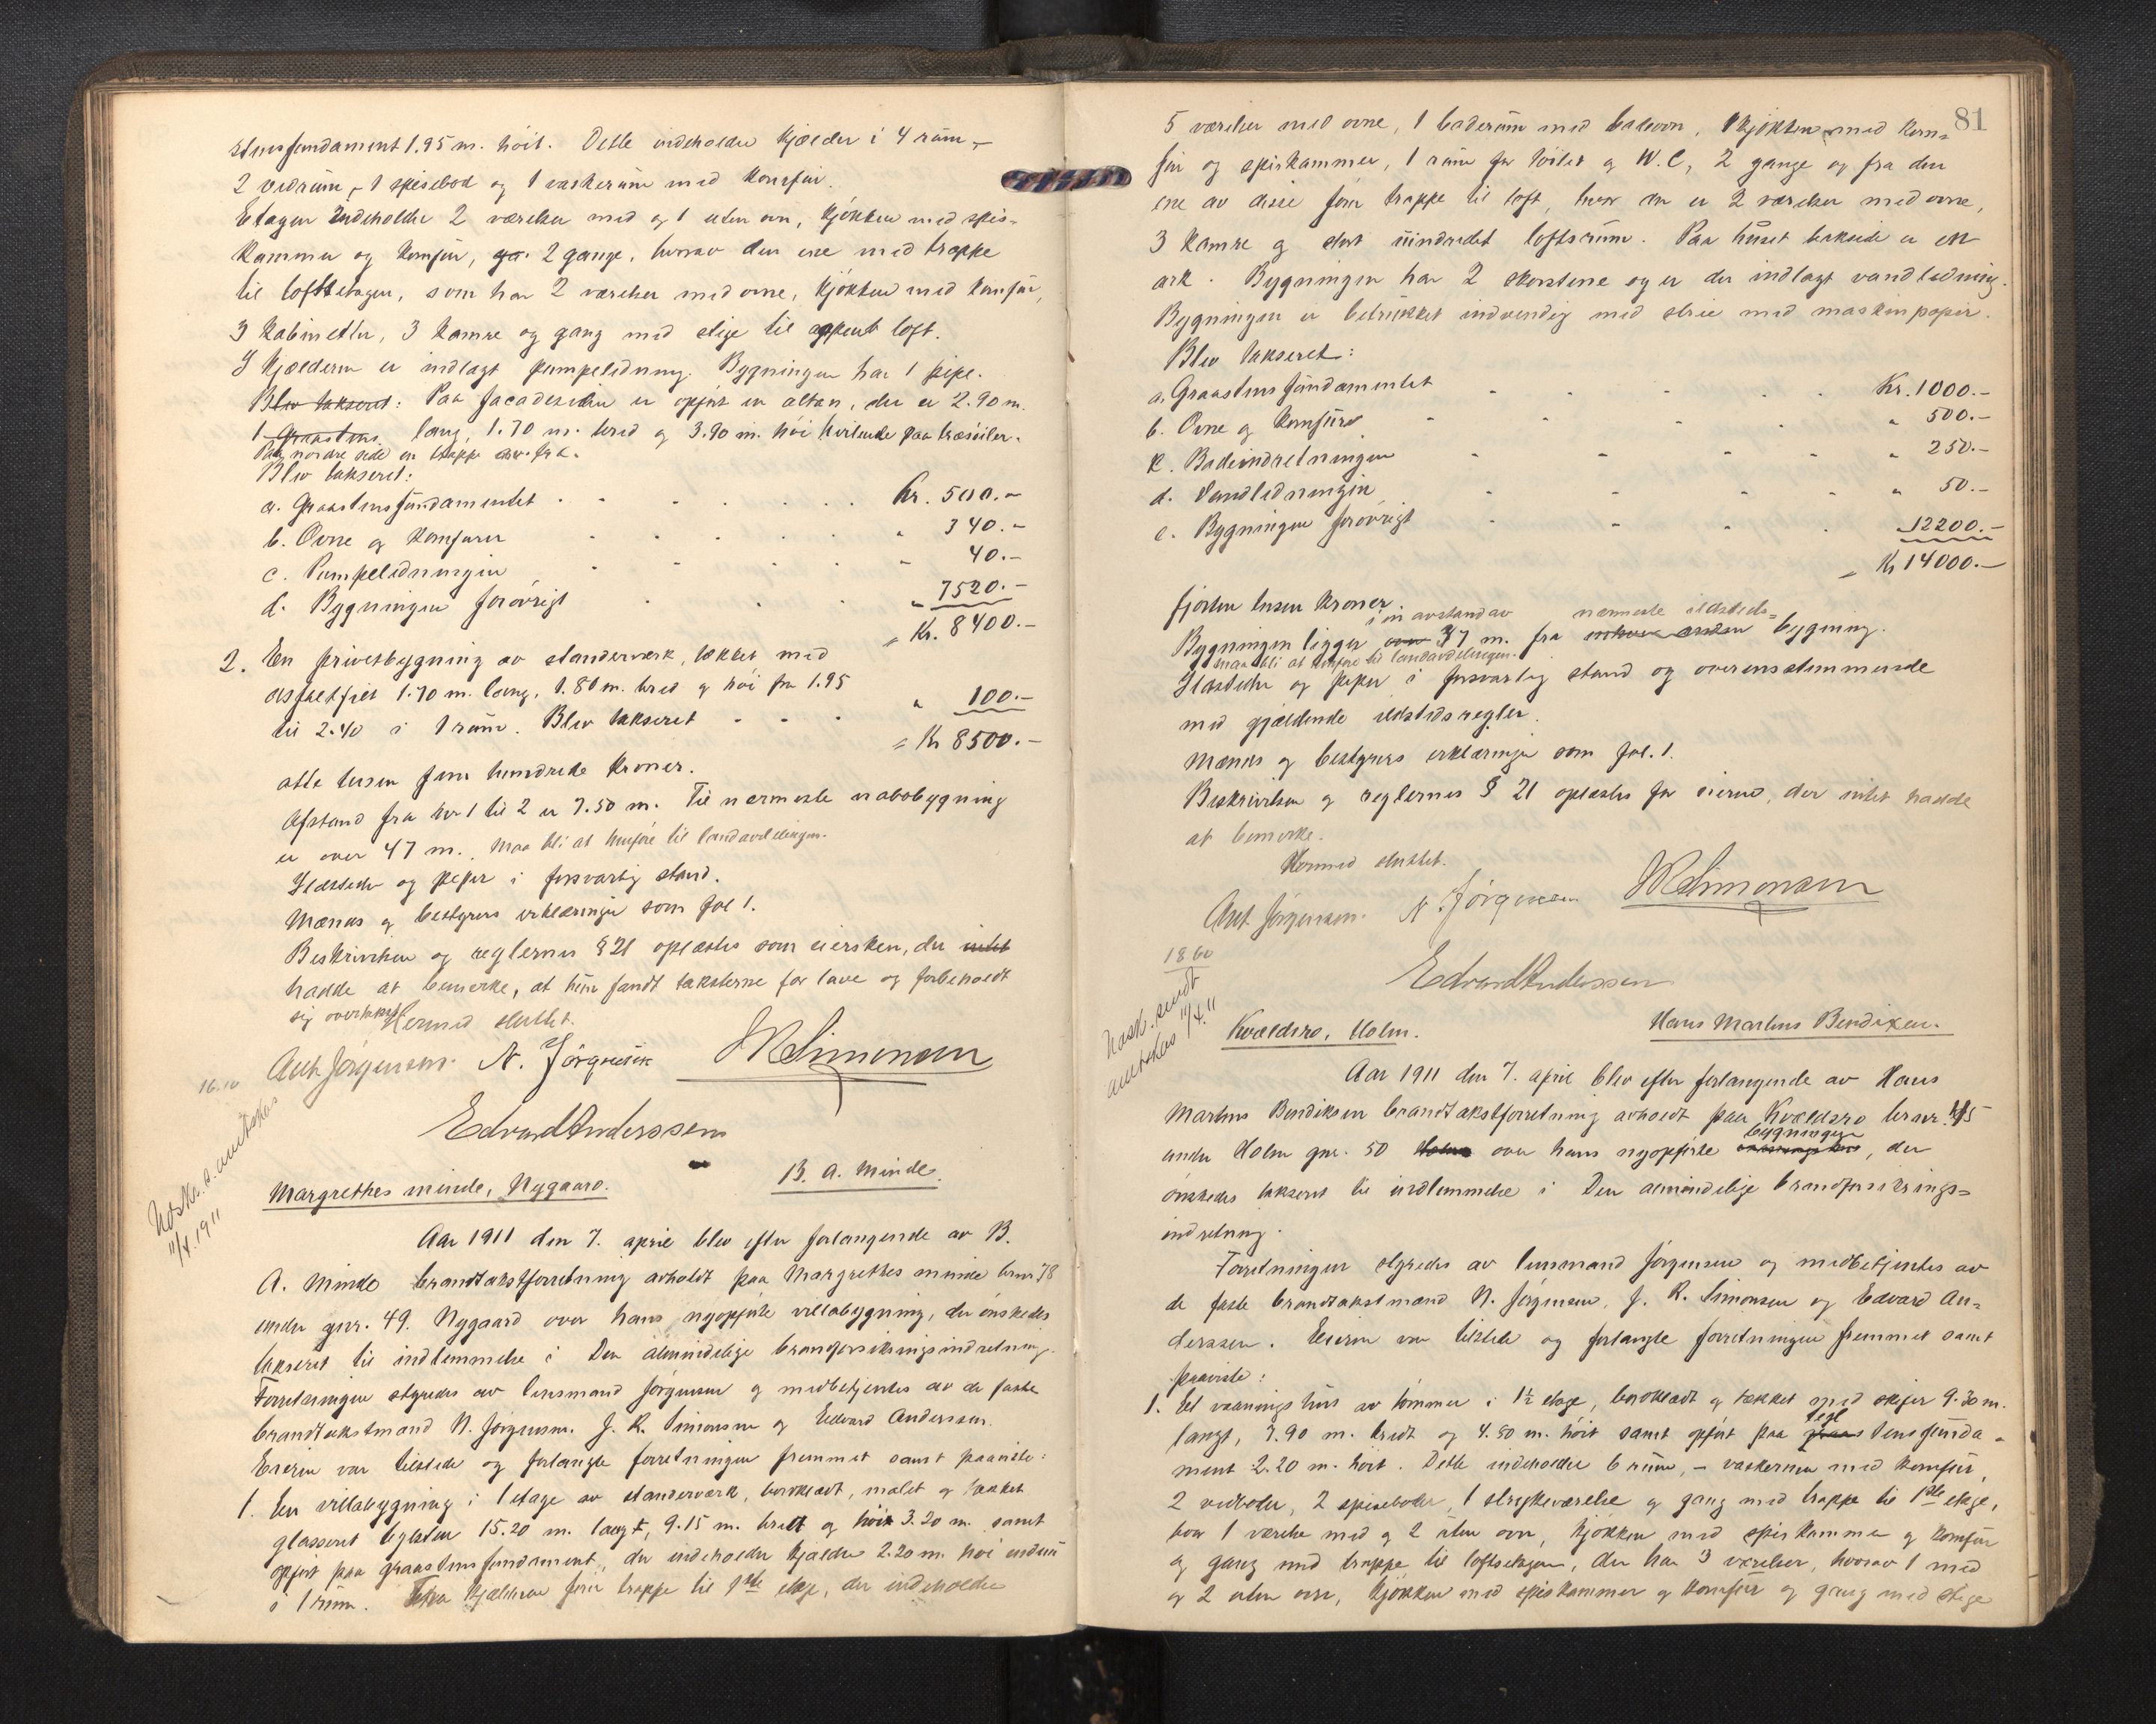 stensfundament 1.95 m. höit. Dette indeholder kjælder i 4 rum, -
2 vedrum, 1 spisebod og 1 vaskerum med komfur.
Etagen indeholder 2 værelser med og 1 uten ovn, kjökken med spis-
kammer og komfur, 2 gange, hvorav den ene med trappe
til loftsetagen, som har 2 værelser med ovne, kjökken med komfur,
3 kabinetter, 3 kamre og gang med stige til appent loft.
I kjælderen er indlagt pumpeledning. Bygningen har 1 pipe.
Blev takseret: Paa facadesiden er opfört en altan, der er 2.90 m.
1 Graastens lang, 1.70 m. bred og 3.90 m. höi hvilende paa træsöiler.
Paa nordre side en trappe
Blev takseret:
a. Graastensfundamentet Kr. 500.-
b. Ovne og komfurer " 340.-
c. Pumpeledningen " 40.-
d. Bygningen forövrigt " 7520.-
= Kr. 8400.-
2. En privetbygning av standerverk, tækket med
asfaltfilt 1.70 m. lang, 1.80 m. bred og höi fra 1.95
til 2.40 i 1 rum. Blev takseret " 100.-
= Kr 8500.-
otte tusen fem hundrede kroner.
Afstand fra nr 1 til 2 er 7.50 m. Til nærmeste nabobygning
er over 47 m. Maa bli at henföre til landavdelingen.
Ildsteder og piper i forsvarlig stand.
Mænds og bestyrers erklæringer som fol 1.
Beskrivelsen og reglernes § 21 oplæstes som eiersken, der intet
hadde at bemerke, at hun fandt taksterne for lave og forbeholdt
sig overtakst. Hermed sluttet.
Ant Jörgensen. N. Jörgensen J R Simonsen
16.10
Edvard Anderssen
Utskr. s. amtskas
11/4.1911
Margrethes minde, Nygaard. B. A. Minde.
Aar 1911 den 7. april blev efter forlangende av B.
A. Minde brandtakstforretning avholdt paa Margrethes minde brnr 78
under gnr. 49. Nygaard over hans nyopförte villabygning, der önskedes
takseret til indlemmelse i Den almindelige brandforsikringsindretning.
Forretningen styredes av lensmand Jörgensen og medbetjentes av de faste
brandtakstmænd N. Jörgensen, J. R. Simonsen og Edvard Anderssen.
Eieren var tilstede og forlangte forretningen fremmet samt paaviste:
1. En villabygning i 1 etage av standerværk, bordklædt, malet og tækket
glasseret teglsten 15.20 m. langt, 9.15 m. bredt og höit 3.20 m. samt
opfört paa graastensfundament, der indeholder kjælder 2.20 m. höi indeni
i 1 rum. Fra kjælderen förer trappe til 1ste etage, der indeholder
81
5 værelser med ovne, 1 baderum med badeovn, 1 kjökken med kom-
fur og spiskammer, 1 rum for toilet og W.C, 2 gange og fra den
ene av disse förer trappe til loft, hvor der er 2 værelser med ovne,
3 kamre og stort uindredet loftsrum. Paa huset bakside er en
ark. Bygningen har 2 skorstene og er der indlagt vandledning.
Bygningen er betrukket indvendig med strie med maskinpapir.
Blev takseret:
a. Graastensfundamentet Kr. 1000.-
b. Ovne og komfurer " 500.-
c. Badeindretningen " 250.-
d. Vandledningen " 50.-
e. Bygningen forövrigt 12200.-
= Kr 14000.-
fjorten tusen kroner.
i en avstand av nærmeste ildsteds-
Bygningen ligger over 37 m. fra bygning.
Maa bli at henföre til landavdelingen.
Ildsteder og piper i forsvarlig stand og overensstemmende
med gjældende ildstedsregler.
Mænds og bestyrers erklæringer som fol. 1.
Beskrivelsen og reglernes § 21 oplæstes for eieren, der intet hadde
at bemerke.
Hermed sluttet.
Ant Jörgensen. N. Jörgensen J R Simonsen
18.60
Edvard Anderssen
Utsk. sendt
amtskas 11/4.11
Kvældsro, Holm. Hans Martens Bendixen.
Aar 1911 den 7. april blev efter forlangende av Hans
Martens Bendiksen brandtakstforretning avholdt paa Kvældsro brnr. 45
under Holm gnr. 50 Holm over hans nyopförte bygninger, der
önskedes takseret til indlemmelse i Den almindelige brandforsikrings=
indretning.
Forretningen styredes av lensmand Jörgensen og medbetjentes av
de faste brandtakstmænd N. Jörgensen, J. R. Simonsen og Edvard An-
derssen. Eieren var tilstede og forlangte forretningen fremmet samt
paaviste:
1. Et vaaningshus av tömmer i 1½ etage, bordklædt og tækket med skifer 9.30 m.
langt, 7.90 m. bredt og 4.80 m. höit samt opfört paa tegl graastensfunda-
ment 2.20 m. höit. Dette indeholder 6 rum, - vaskerum med komfur,
2 vedboder, 2 spiseboder, 1 strykeværelse og gang med trappe til 1ste etage,
hvor 1 værelse med og 2 uten ovn, kjökken med spiskammer og komfur
og gang med trappe til loftsetagen, der har 3 værelser, hvorav 1 med
og 2 uten ovn, kjökken med spiskammer og komfur og gang med stige